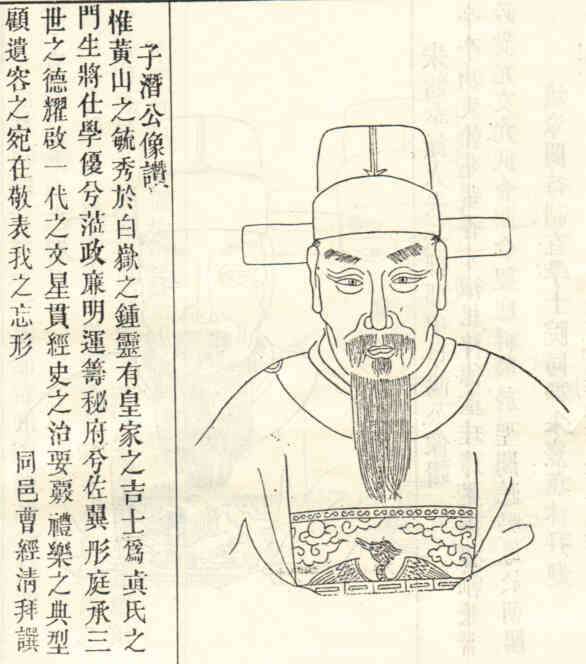 子濳公像讚
惟黃山之毓秀於白嶽之鍾靈有皇家之吉士爲眞氏之
門生將仕學優兮蒞政廉明運籌秘府兮佐翼彤庭承三
世之德耀啟一代之文星貫經史之治要覈禮樂之典型
顧遺容之宛在敬表我之忘形
同邑曹經清拜譔